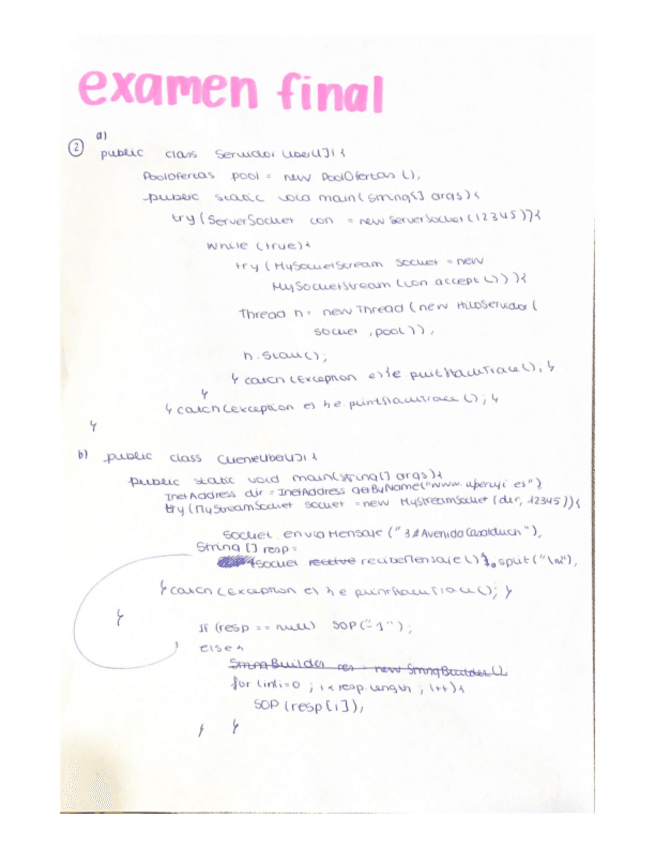 examen final
② a)
public class Servidor UberUJI {
PoolOfertas pool = new PoolOfertas ();
public static void main (String[] args) {
try (ServerSocket con = new ServerSocket (12345)) {
while (true) {
try (MySocketStream socket = new
MySocketStream (con.accept ()) ) {
Thread h = new Thread (new HiloServidor (
socket , pool));
h.start ();
} catch (Exception e) { e.printStackTrace (); }
}
} catch (exception e) { e.printStackTrace (); }
}
b) public class ClienteUberUJI {
public static void main (String [] args) {
InetAddress dir = InetAddress getByName("www. uberuji es")
try (MyStreamSocket socket = new MyStreamSocket (dir, 12345)) {
socket. envia Mensaje ("3#Avenida Casalduch");
String [] resp =
socket receive recibeMensaje () . split ("\n");
} catch (Exception e) { e printStackTrace (); }
}
If (resp == null) SOP("-1");
else {
StringBuilder res = new StringBuilder ()
for (int i=0 ; i < resp. length ; i++) {
SOP (resp [i]);
} }